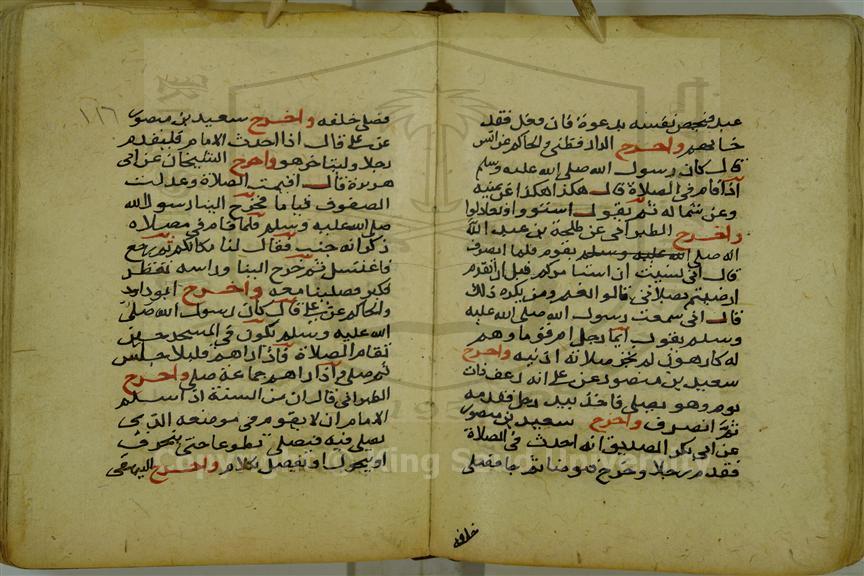 عبد فيخص نفسه بدعوة فان فعل فقد
خانهم واخرج الدارقطني والحاكم عن انس
قال كان رسول الله صلى الله عليه وسلم
اذا قام في الصلاة قال هكذا هكذا عن يمينه
وعن شماله ثم يقول استووا وتعادلوا
واخرج الطبراني عن طلحة بن عبد الله
انه صلى بقوم فلما انصرف
قال اني نسيت ان استامركم قبل ان اتقدم
ارضيتم بصلاتي قالوا نعم ومن يكره ذلك
قال اني سمعت رسول الله صلى الله عليه
وسلم يقول ايما رجل ام قوما وهم
له كارهون لم تجز صلاته اذنيه واخرج
سعيد بن منصور عن علي انه رعف ذات
يوم وهو يصلي فاخذ بيد رجل فقدمه
ثم انصرف واخرج سعيد بن منصور
عن ابي بكر الصديق انه احدث في الصلاة
فقدم رجلا وخرج فتوضا ثم جا فصلى
خلفه
١١٦
فصلى خلفه واخرج سعيد بن منصور
عن علي قال اذا احدث الامام فليقدم
رجلا وليتاخر هو واخرج الشيخان عن ابي
هريرة قال اقيمت الصلاة وعدلت
الصفوف قياما فخرج الينا رسول الله
صلى الله عليه وسلم فلما قام في مصلاه
ذكر انه جنب فقال لنا مكانكم ثم رجع
فاغتسل ثم خرج الينا وراسه تقطر
فكبر فصلينا معه واخرج ابو داود
والحاكم عن علي قال كان رسول الله صلى
الله عليه وسلم يكون في المسجد حين
تقام الصلاة فاذا راهم قليلا جلس
ثم صلى واذا راهم جماعة صلى واخرج
الطبراني قال ان من السنة اذا سلم
الامام ان لا يقوم في موضعه الذي
يصلي فيه فيصلي تطوعا حتى ينحرف
او يتحول او يفصل بكلام واخرج البيهقي
Copyright © King Saud University